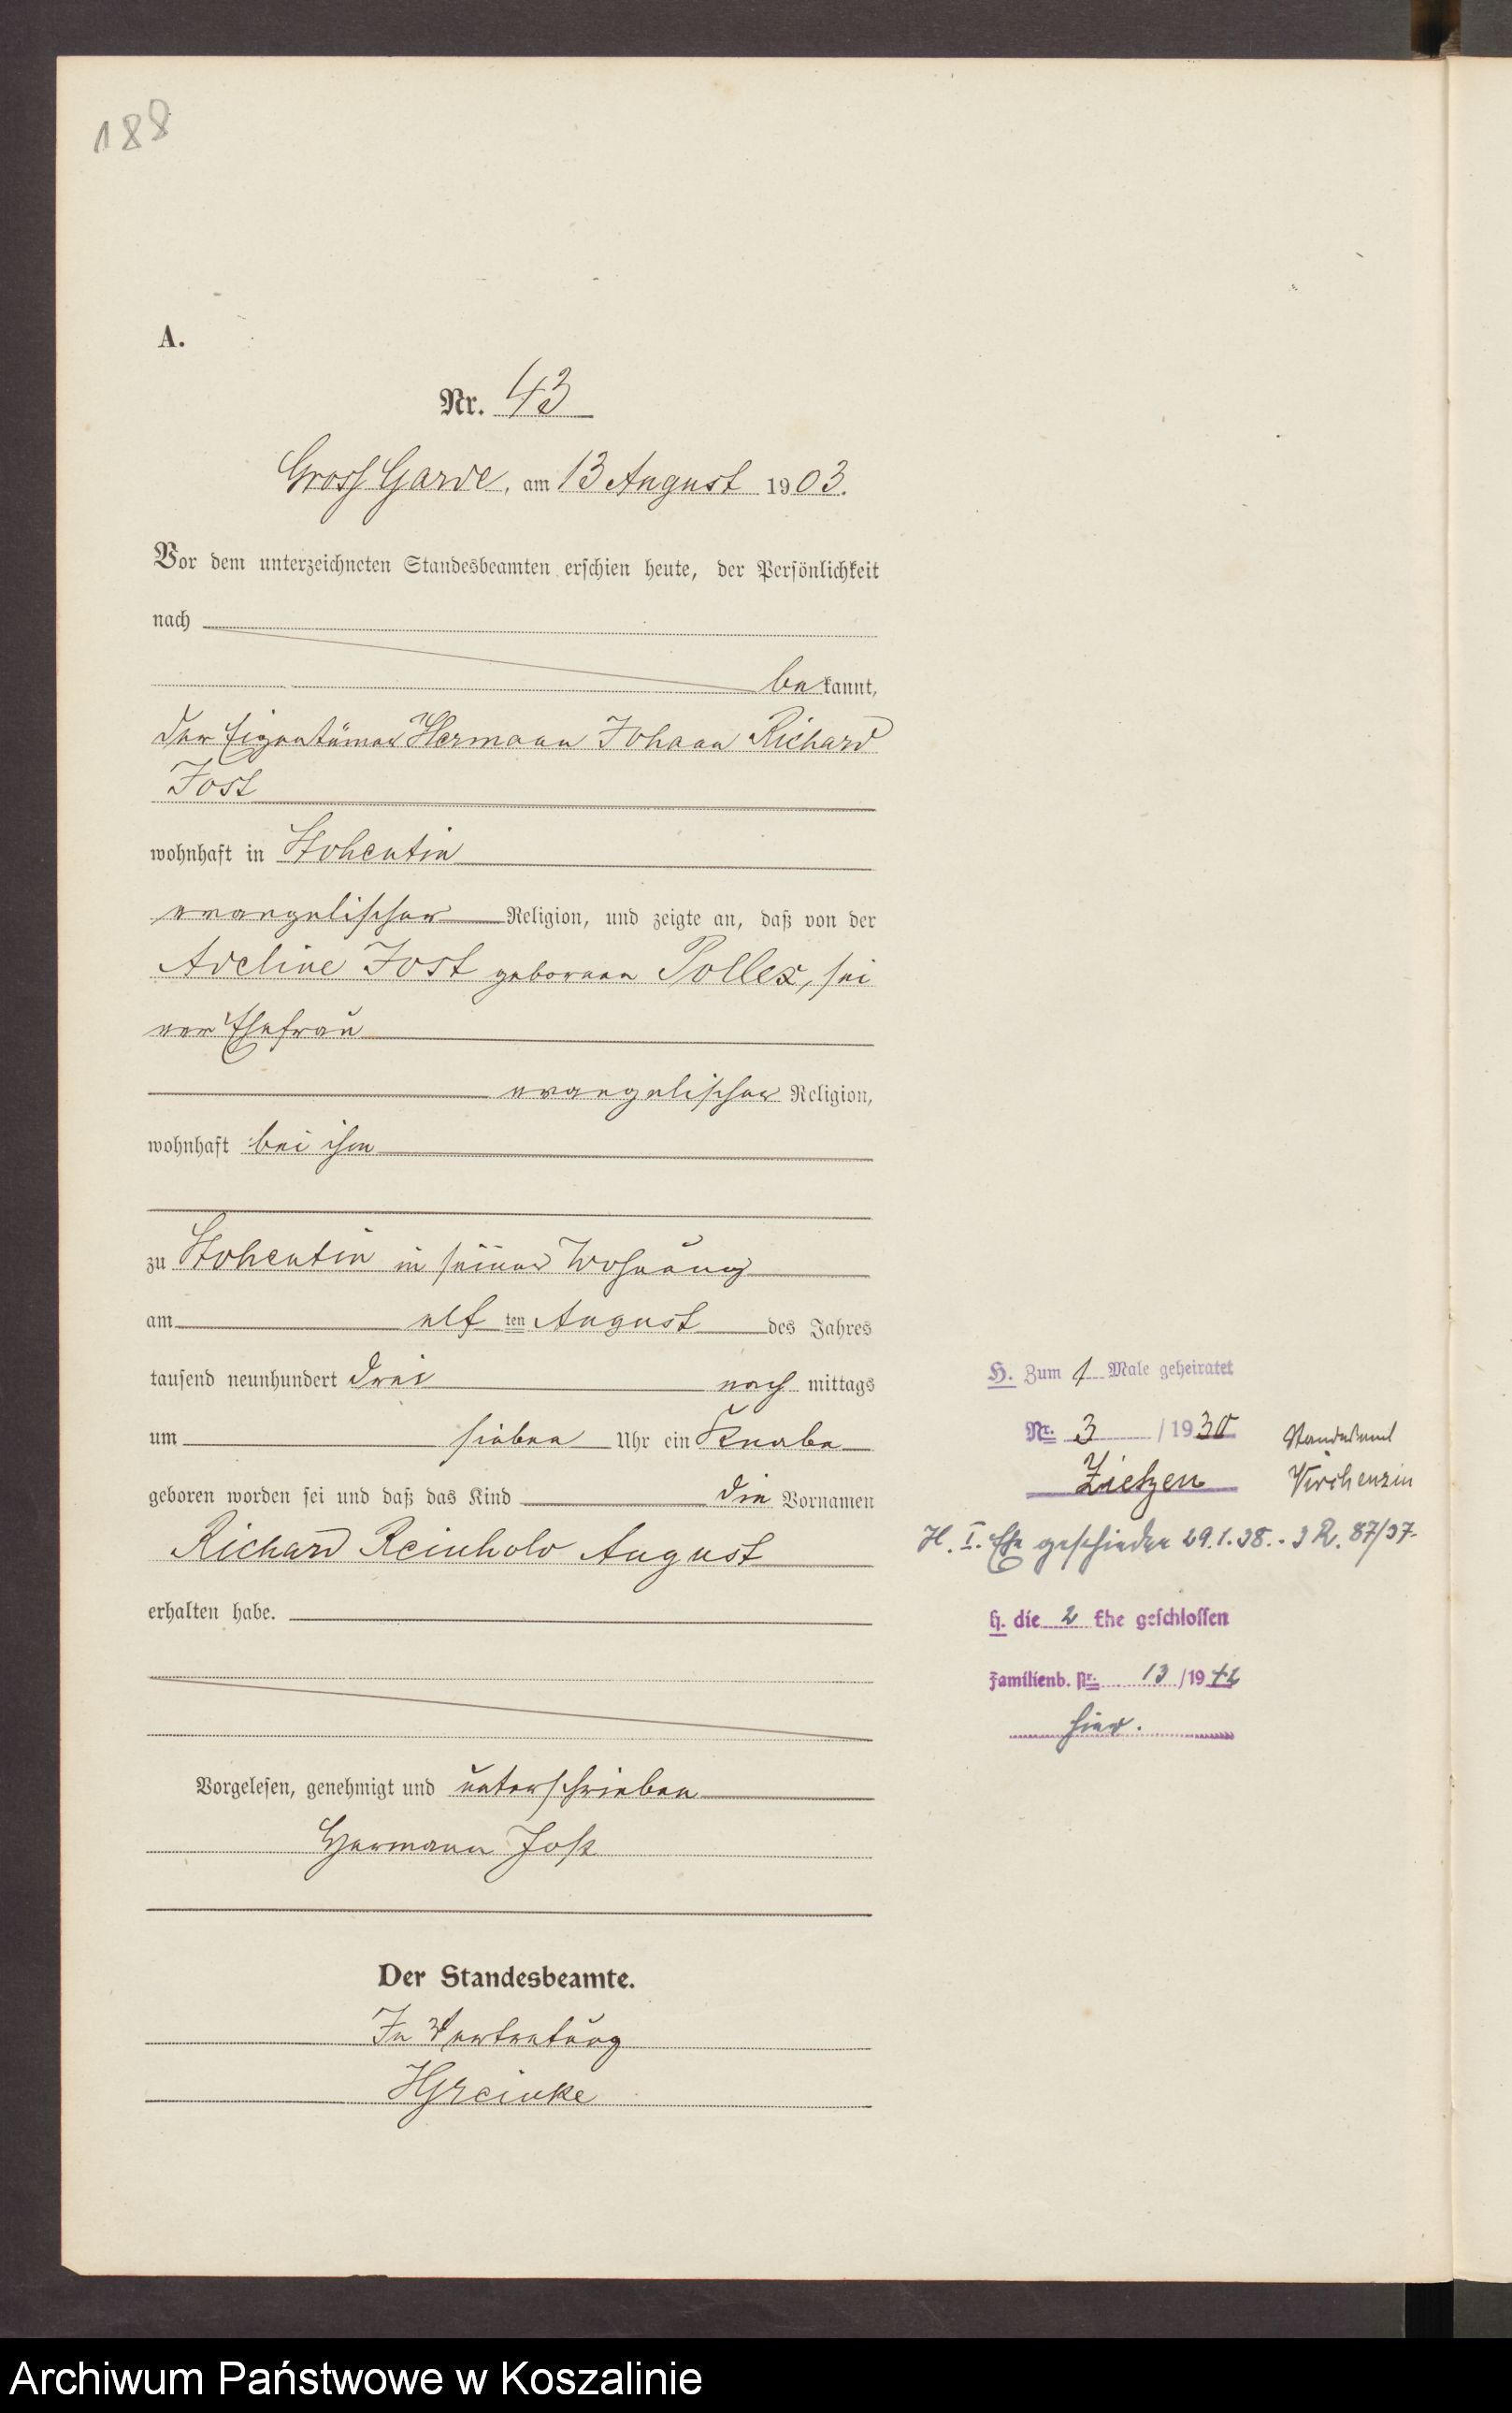 188
A.
Nr. 43
Gross Garde, am 13 August 1903.
Vor dem unterzeichneten Standesbeamten erschien heute, der Persönlichkeit
nach
bekannt,
der Eigentümer Hermann Johann Richard
Jost
wohnhaft in Stohentin
evangelischer Religion, und zeigte an, daß von der
Adeline Jost geborenen Pollex, sei
ner Ehefrau
evangelischer Religion,
wohnhaft bei ihm
zu Stohentin in seiner Wohnung
am elf ten August des Jahres
tausend neunhundert drei nach mittags
um sieben Uhr ein Knabe
geboren worden sei und daß das Kind die Vornamen
Richard Reinhold August
erhalten habe.
Vorgelesen, genehmigt und unterschrieben
Hermann Jost
Der Standesbeamte.
In Vertretung
HGreinke
H. Zum 1 Male geheiratet
Nr. 3 / 1930 Standesamt
Zietzen Virchenzin
H. I. Ehe geschieden 29.1.38. - 3 R. 87/37-
H. die 2 Ehe geschlossen
Familienb. Nr. 13 /1942
hier.
Archiwum Państwowe w Koszalinie